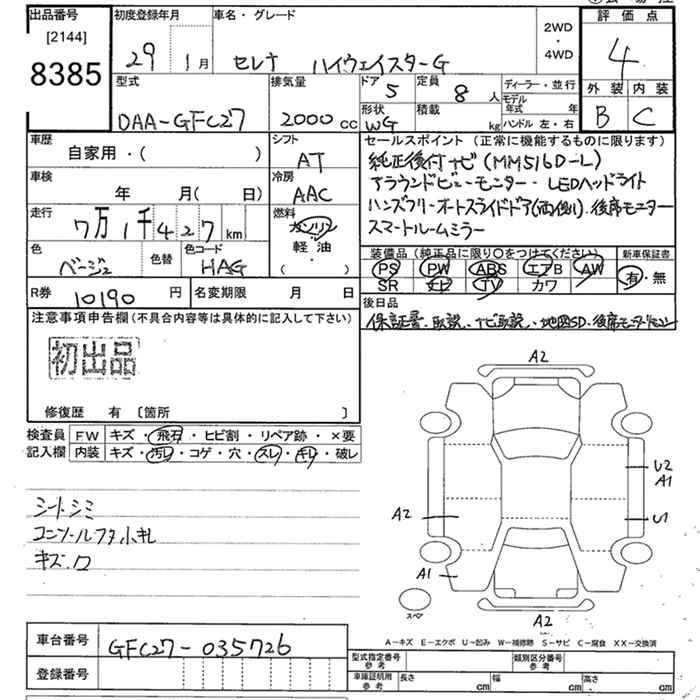 出品番号
[2144]
8385
初度登録年月
29 1 月
車名・グレード
セレナ ハイウェイスターG
2WD
・
4WD
評価点
4
外装 内装
B C
型式
DAA-GFC27
排気量
2000 cc
ドア 5
定員 8 人
形状 WG
積載 kg
ディーラー・並行
モデル年式 年
ハンドル 左・右
車歴
自家用・( )
シフト
AT
車検
年 月( 日)
冷房
AAC
走行
7万1千427 km
燃料
ガソリン
軽油
( )
色
ベージュ
色替
色コード
HAG
R券 10190 円
名変期限 月 日
セールスポイント (正常に機能するものに限ります)
純正後付ナビ(MM516D-L)
アラウンドビューモニター・LEDヘッドライト
ハンズフリーオートスライドドア(両側)、後席モニター
スマートルームミラー
装備品 (純正品に限り〇をつけてください)
PS PW ABS エアB AW
SR ナビ TV カワ
新車保証書
有・無
後日品
保証書、取説、ナビ取説、地図SD、後席モニターリモコン
注意事項申告欄(不具合内容等は具体的に記入して下さい)
初出品
修復歴 有 〔箇所 〕
検査員
記入欄
FW キズ・飛石・ヒビ割・リペア跡・×要
内装 キズ・汚レ・コゲ・穴・スレ・キレ・破レ
シートシミ
コンソールフタ小キレ
キズ、ワ
A2
U2
A1
A2
U1
A1
スペア
A2
A－キズ E－エクボ U－凹み W－補修跡 S－サビ C－腐食 XX－交換済
車台番号 GFC27-035726
登録番号
型式指定番号
参考
類別区分番号
参考
車庫証明用
参考
長さ cm 幅 cm 高さ cm